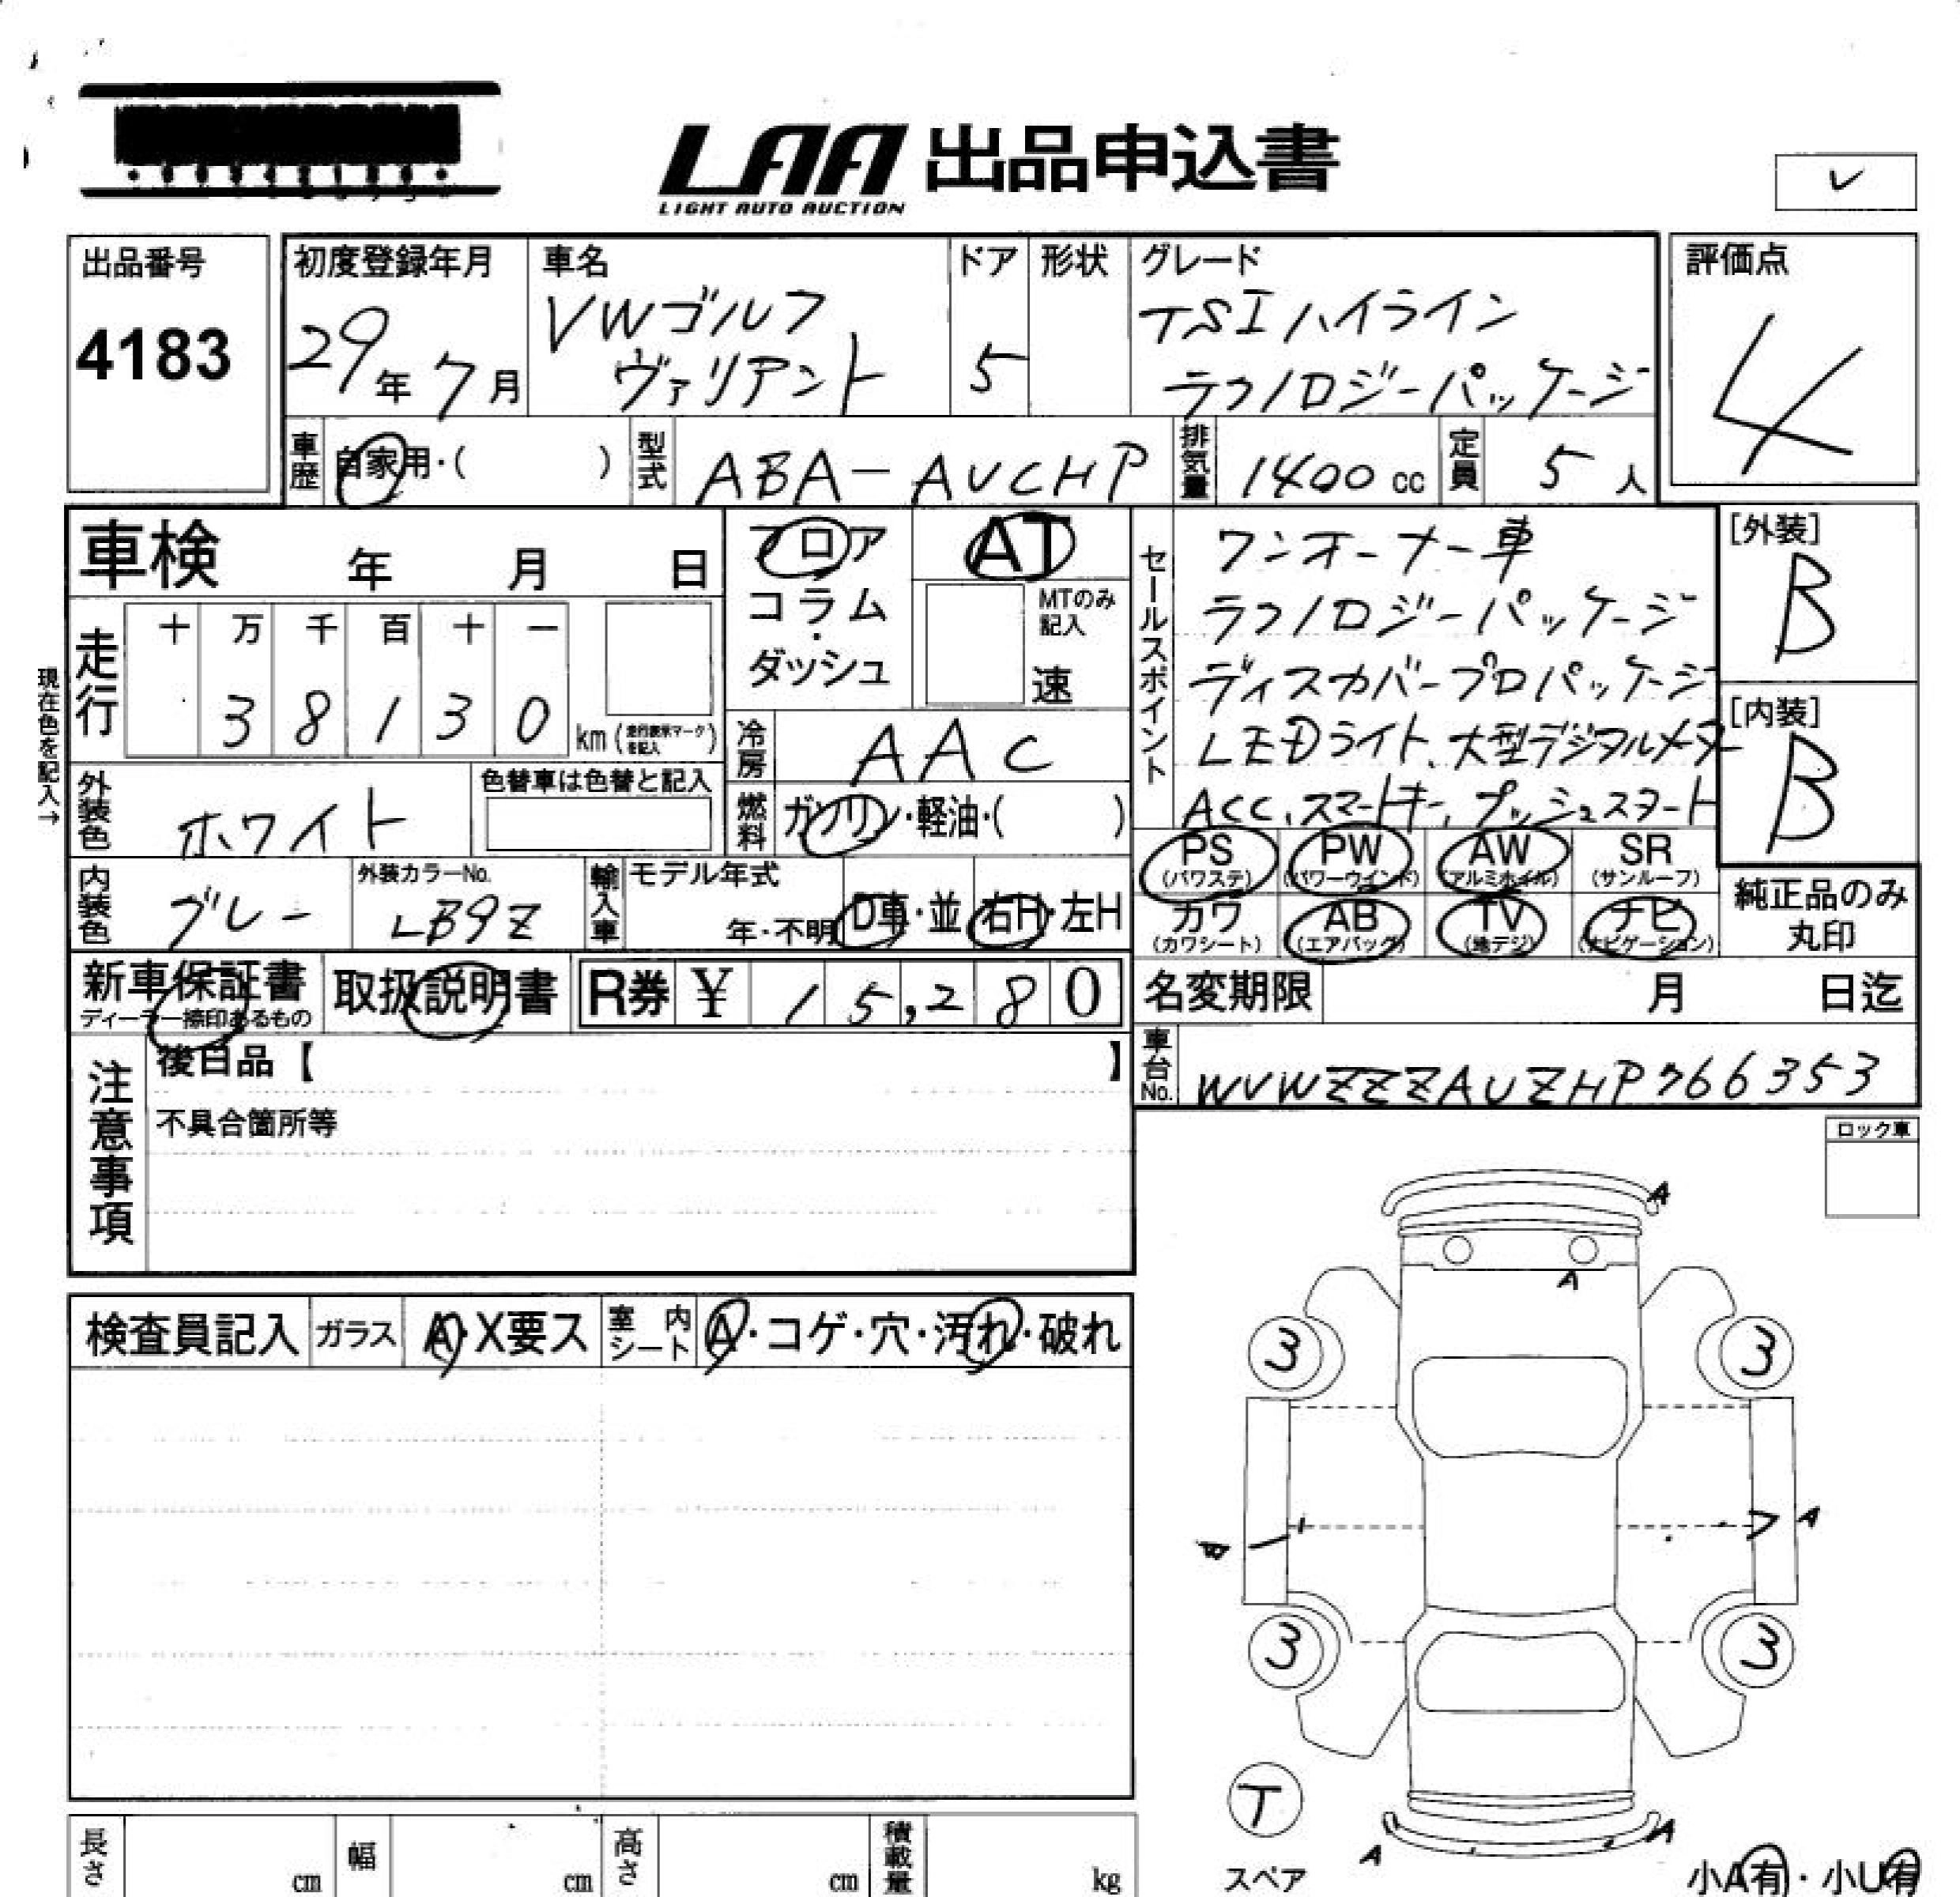 LAA 出品申込書
LIGHT AUTO AUCTION
レ
出品番号
4183
初度登録年月
29年 7月
車名
VWゴルフ
ヴァリアント
ドア
5
形状
グレード
TSIハイライン
テクノロジーパッケージ
評価点
4
車歴
自家用・( )
型式
ABA-AUCHP
排気量
1400 cc
定員
5人
車検 年 月 日
フロア
コラム
・
ダッシュ
AT
MTのみ
記入
速
セールスポイント
ワンオーナー車
テクノロジーパッケージ
ディスカバープロパッケージ
LEDライト、大型デジタルメーター
ACC、スマートキー、プッシュスタート
[外装]
B
[内装]
B
現在色を記入→
走行
十 万 千 百 十 一
3 8 1 3 0
km(走行表示マークを記入)
冷房
AAC
外装色
ホワイト
色替車は色替と記入
燃料
ガソリン・軽油・( )
PS
(パワステ)
PW
(パワーウインド)
AW
(アルミホイル)
SR
(サンルーフ)
カワ
(カワシート)
AB
(エアバッグ)
TV
(地デジ)
ナビ
(ナビゲーション)
純正品のみ
丸印
内装色
グレー
外装カラーNo.
LB9Z
輸入車
モデル年式
年・不明
D車・並
右H・左H
新車保証書
ディーラー捺印あるもの
取扱説明書
R券 ¥ 15,280
名変期限 月 日迄
車台No.
WVWZZZAUZHP766353
注意事項
後日品【 】
不具合箇所等
ロック車
検査員記入
ガラス
A・X要ス
室内
シート
A・コゲ・穴・汚れ・破れ
A
A
3
3
A
A
3
3
T
スペア
A
A
小A有・小U有
長さ cm
幅 cm
高さ cm
積載量 kg